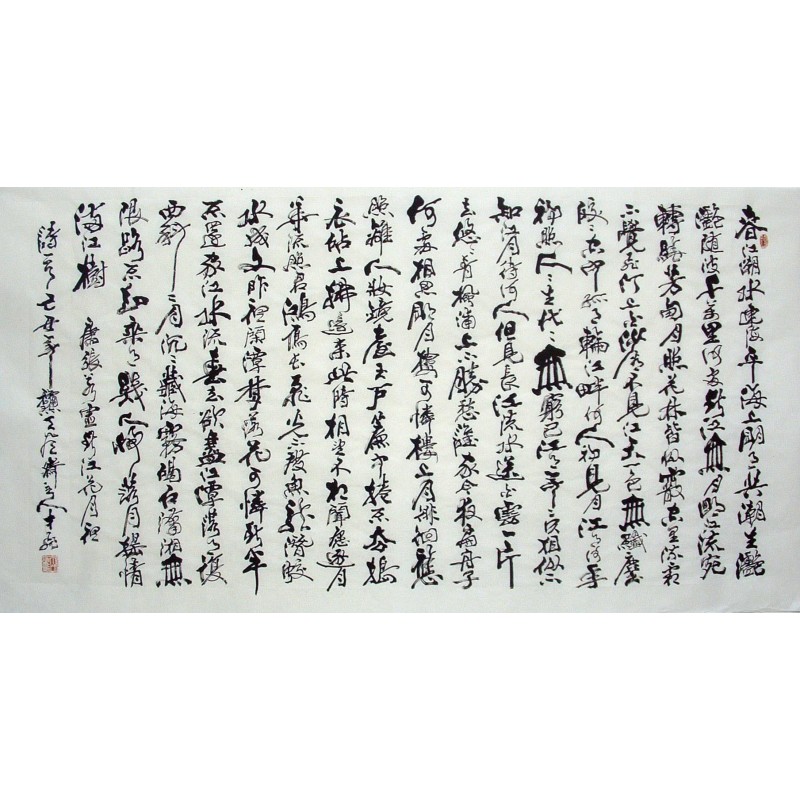 春江潮水連海平海上明月共潮生灩
灩隨波千萬里何處春江無月明江流宛
轉繞芳甸月照花林皆似霰空里流霜
不覺飛汀上白沙看不見江天一色無纖塵
皎皎空中孤月輪江畔何人初見月江月何年
初照人人生代代無窮已江月年年只相似不
知江月待何人但見長江流水送白雲一片
去悠悠青楓浦上不勝愁誰家今夜扁舟子
何處相思明月樓可憐樓上月徘徊應
照離人妝鏡臺玉戶簾中捲不去搗
衣砧上拂還來此時相望不相聞願逐月
華流照君鴻雁長飛光不度魚龍潛躍
水成文昨夜閑潭夢落花可憐春半
不還家江水流春去欲盡江潭落月復
西斜斜月沉沉藏海霧碣石瀟湘無
限路不知乘月幾人歸落月搖情
滿江樹 唐張若虛春江花月夜
詩一首 己丑年 齋主人